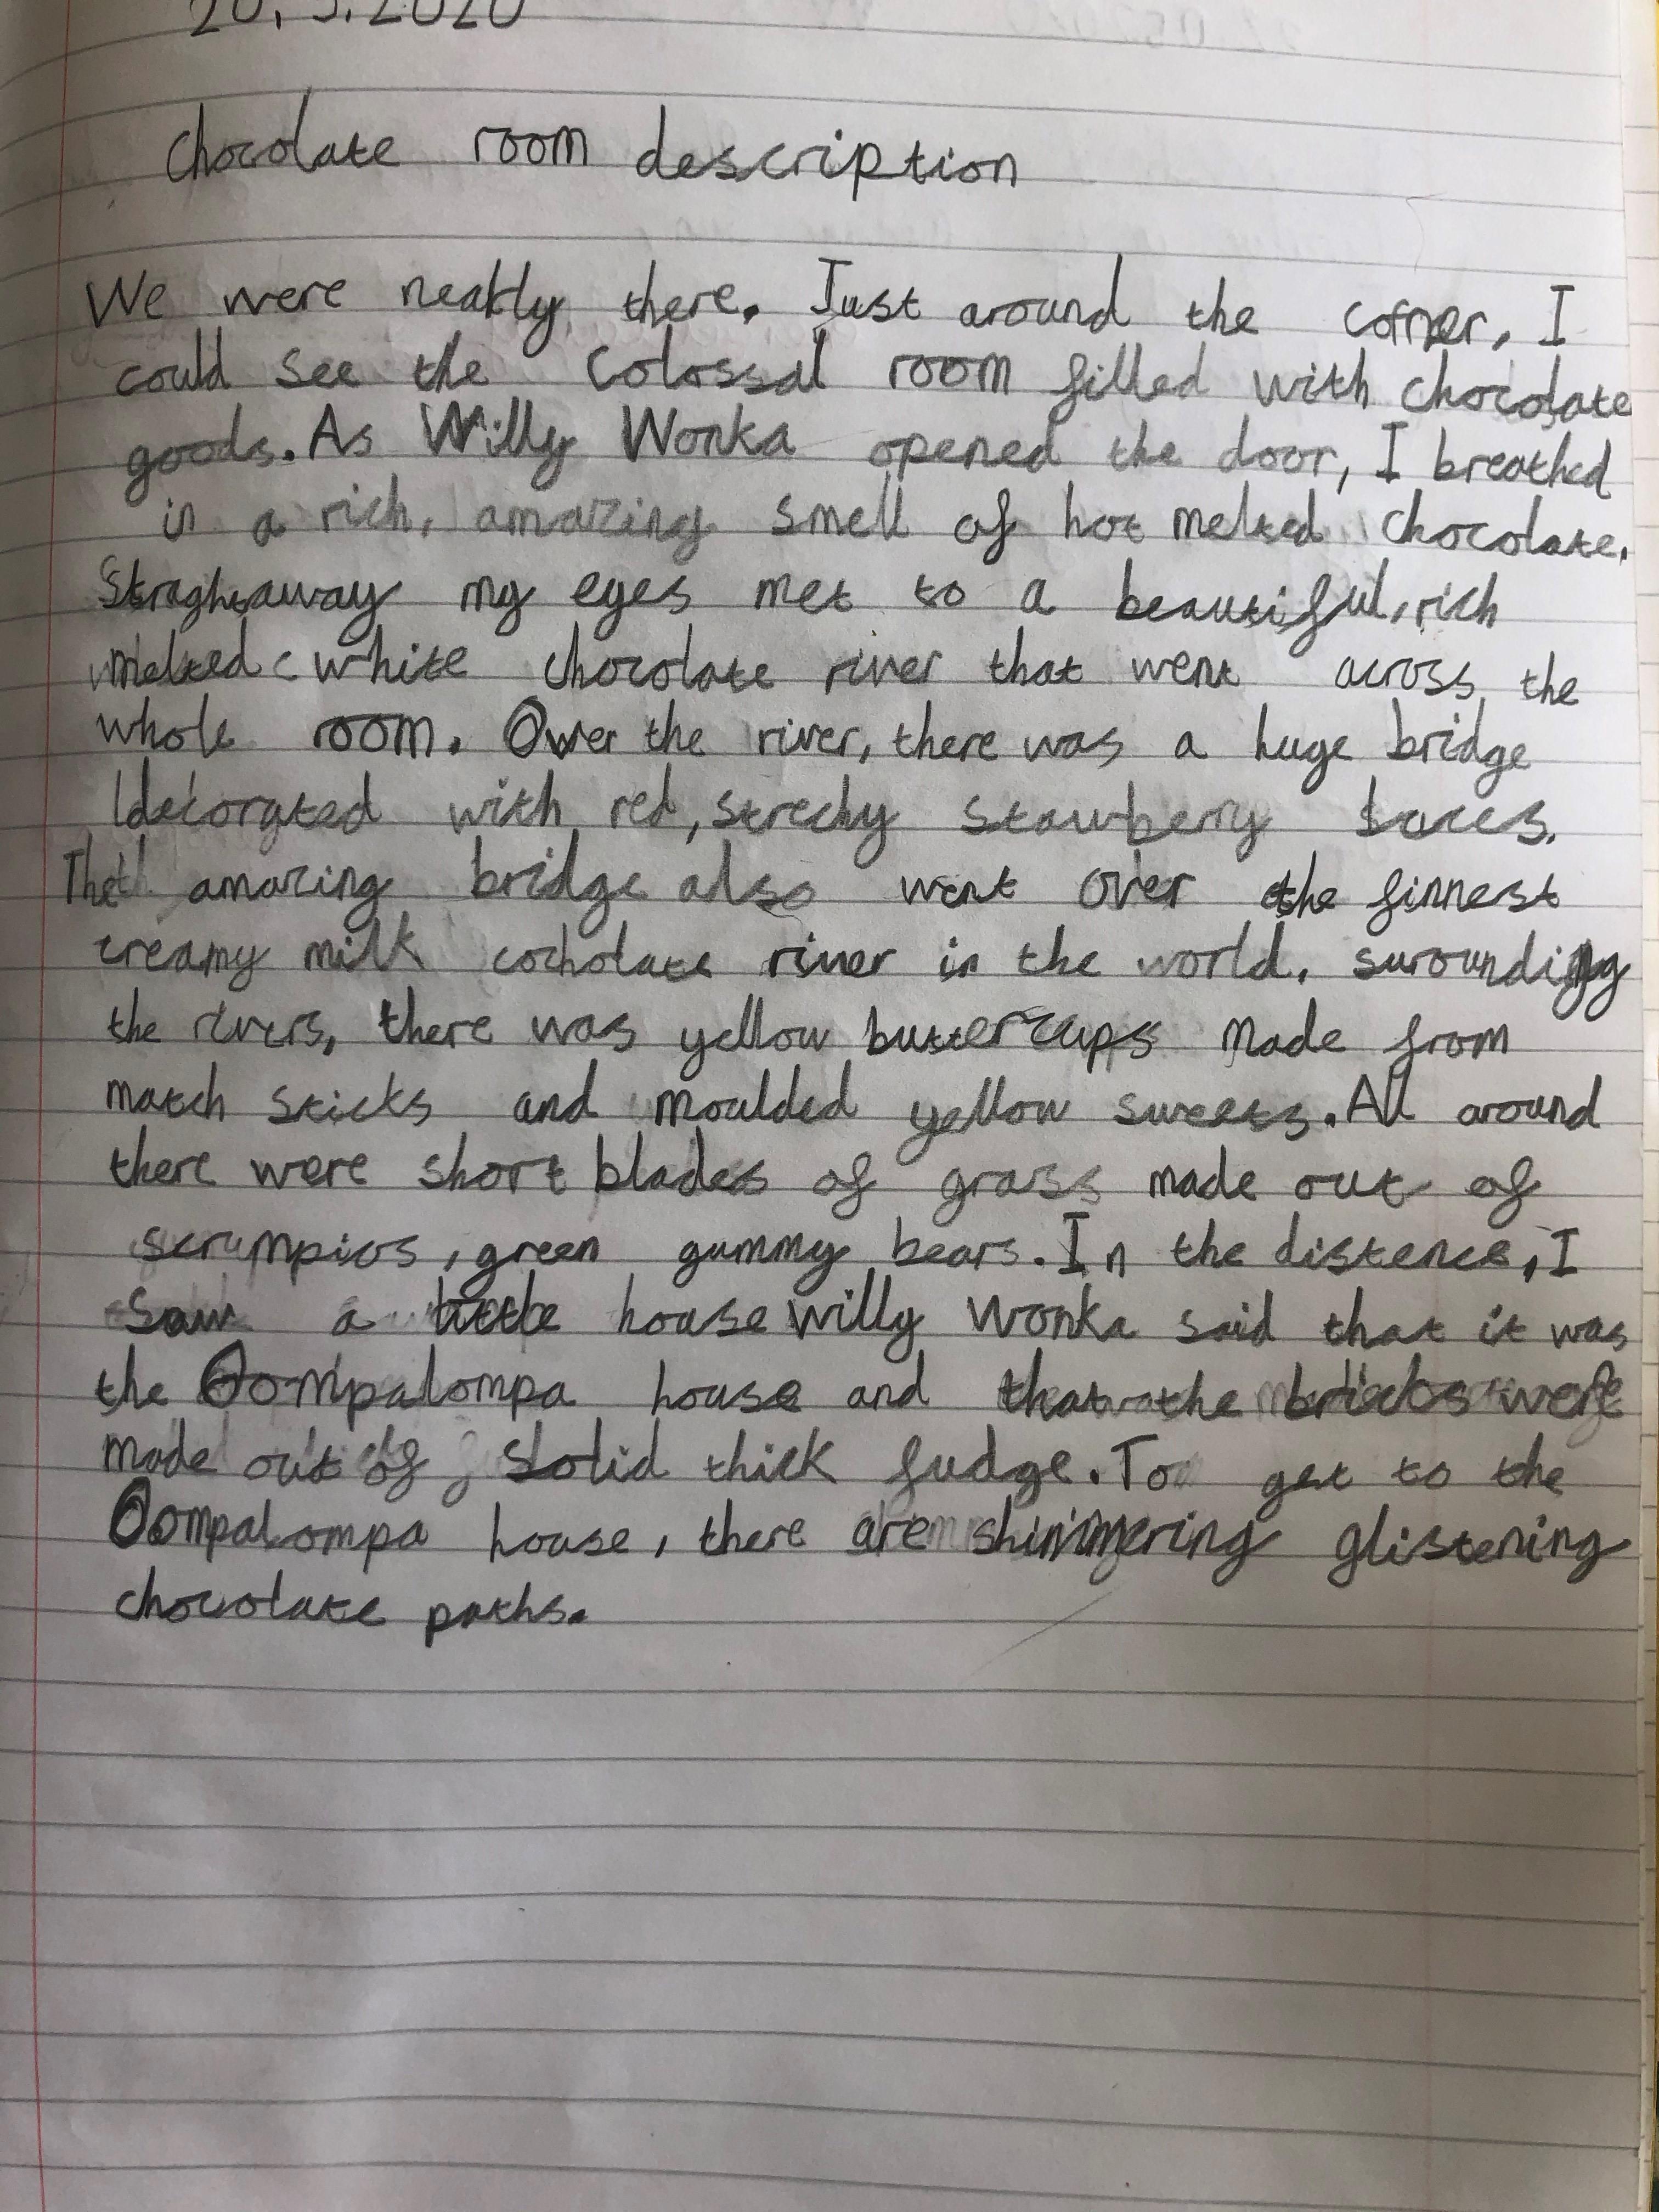 20.5.2020
chocolate room description
We were neatly there. Just around the corner, I
could see the colossal room filled with chocolate
goods. As Willy Wonka opened the door, I breathed
in a rich, amazing smell of hot melted chocolate.
Straghtaway my eyes met to a beautiful, rich
melted white chocolate river that went across the
whole room. Over the river, there was a huge bridge
decorated with red, strechy stawberry laces.
The amazing bridge also went over the finnest
creamy milk cocholate river in the world. surounding
the rivers, there was yellow buttercups made from
match sticks and moulded yellow sweets. All around
there were short blades of grass made out of
scrumpios, green gummy bears. In the distence, I
saw a little house willy wonka said that it was
the Oompalompa house and that the bricks were
made out of solid thick fudge. To get to the
Oompalompa house, there are shimmering glistening
chocolate paths.